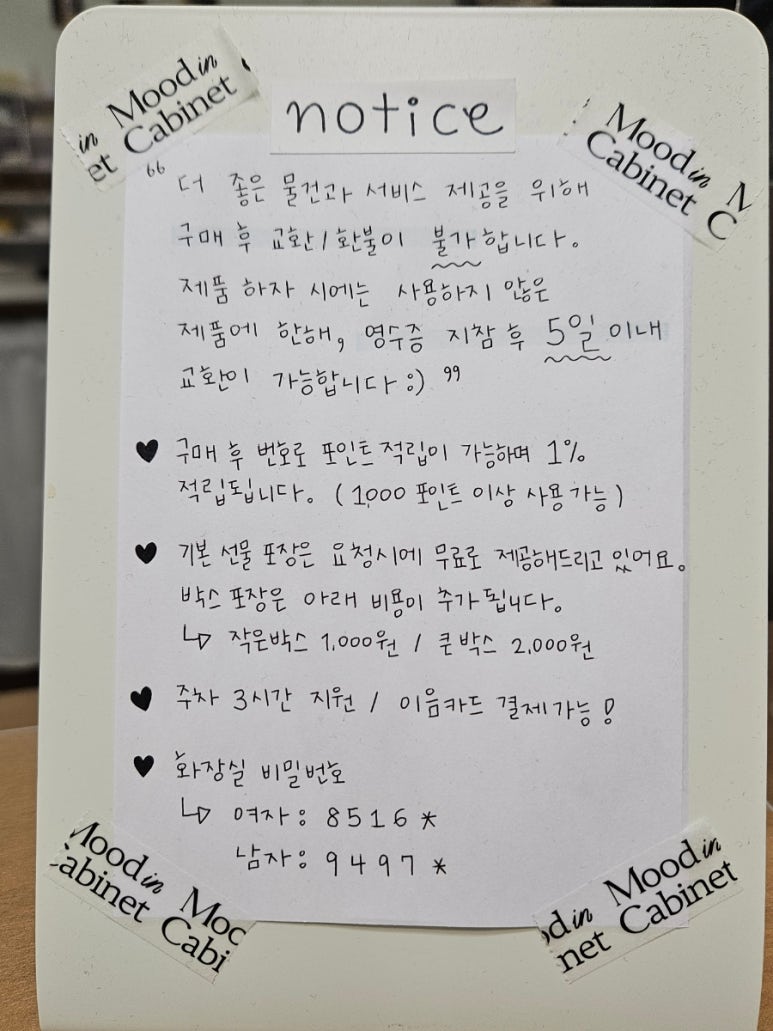 in Mood in
et Cabinet
Mood in M
Cabinet C
notice
“ 더 좋은 물건과 서비스 제공을 위해
구매 후 교환/환불이 불가합니다.
제품 하자 시에는 사용하지 않은
제품에 한해, 영수증 지참 후 5일 이내
교환이 가능합니다 :) ”
♥ 구매 후 번호로 포인트 적립이 가능하며 1%
적립됩니다. (1,000 포인트 이상 사용 가능)
♥ 기본 선물 포장은 요청시에 무료로 제공해드리고 있어요.
박스 포장은 아래 비용이 추가 됩니다.
↳ 작은박스 1,000원 / 큰 박스 2,000원
♥ 주차 3시간 지원 / 이음카드 결제 가능!
♥ 화장실 비밀번호
↳ 여자: 8516*
남자: 9497*
Mood in Moo
Cabinet Cabi
od in Mood in
net Cabinet